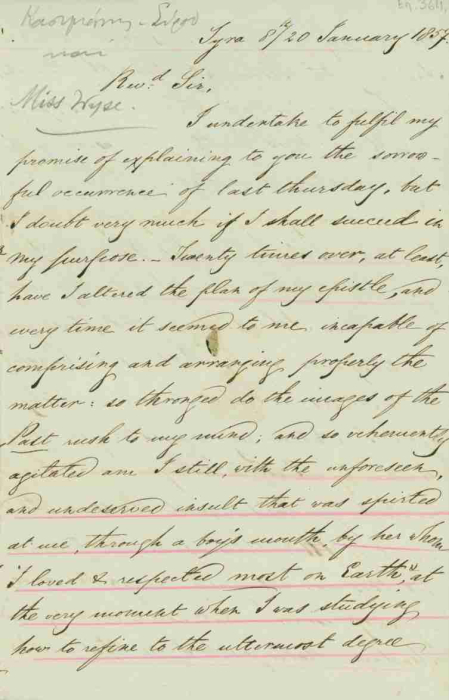 Καστριώτης - Σύρου
και
Syra 8th/20 January 1857.
Revd. Sir,
Miss Wyse.
I undertake to fulfil my
promise of explaining to you the sorrow-
ful occurrence of last thursday, but
I doubt very much if I shall succeed in
my purpose. - Twenty times over, at least,
have I altered the plan of my epistle, and
every time it seemed to me incapable of
comprising and arranging properly the
matter: so thronged do the images of the
Past rush to my mind; and so vehemently
agitated am I still, with the unforeseen,
and undeserved insult that was spirted
at me, through a boy's mouth, by her whom
"I loved & respected most on Earth", at
the very moment when I was studying
how to refine to the uttermost degree